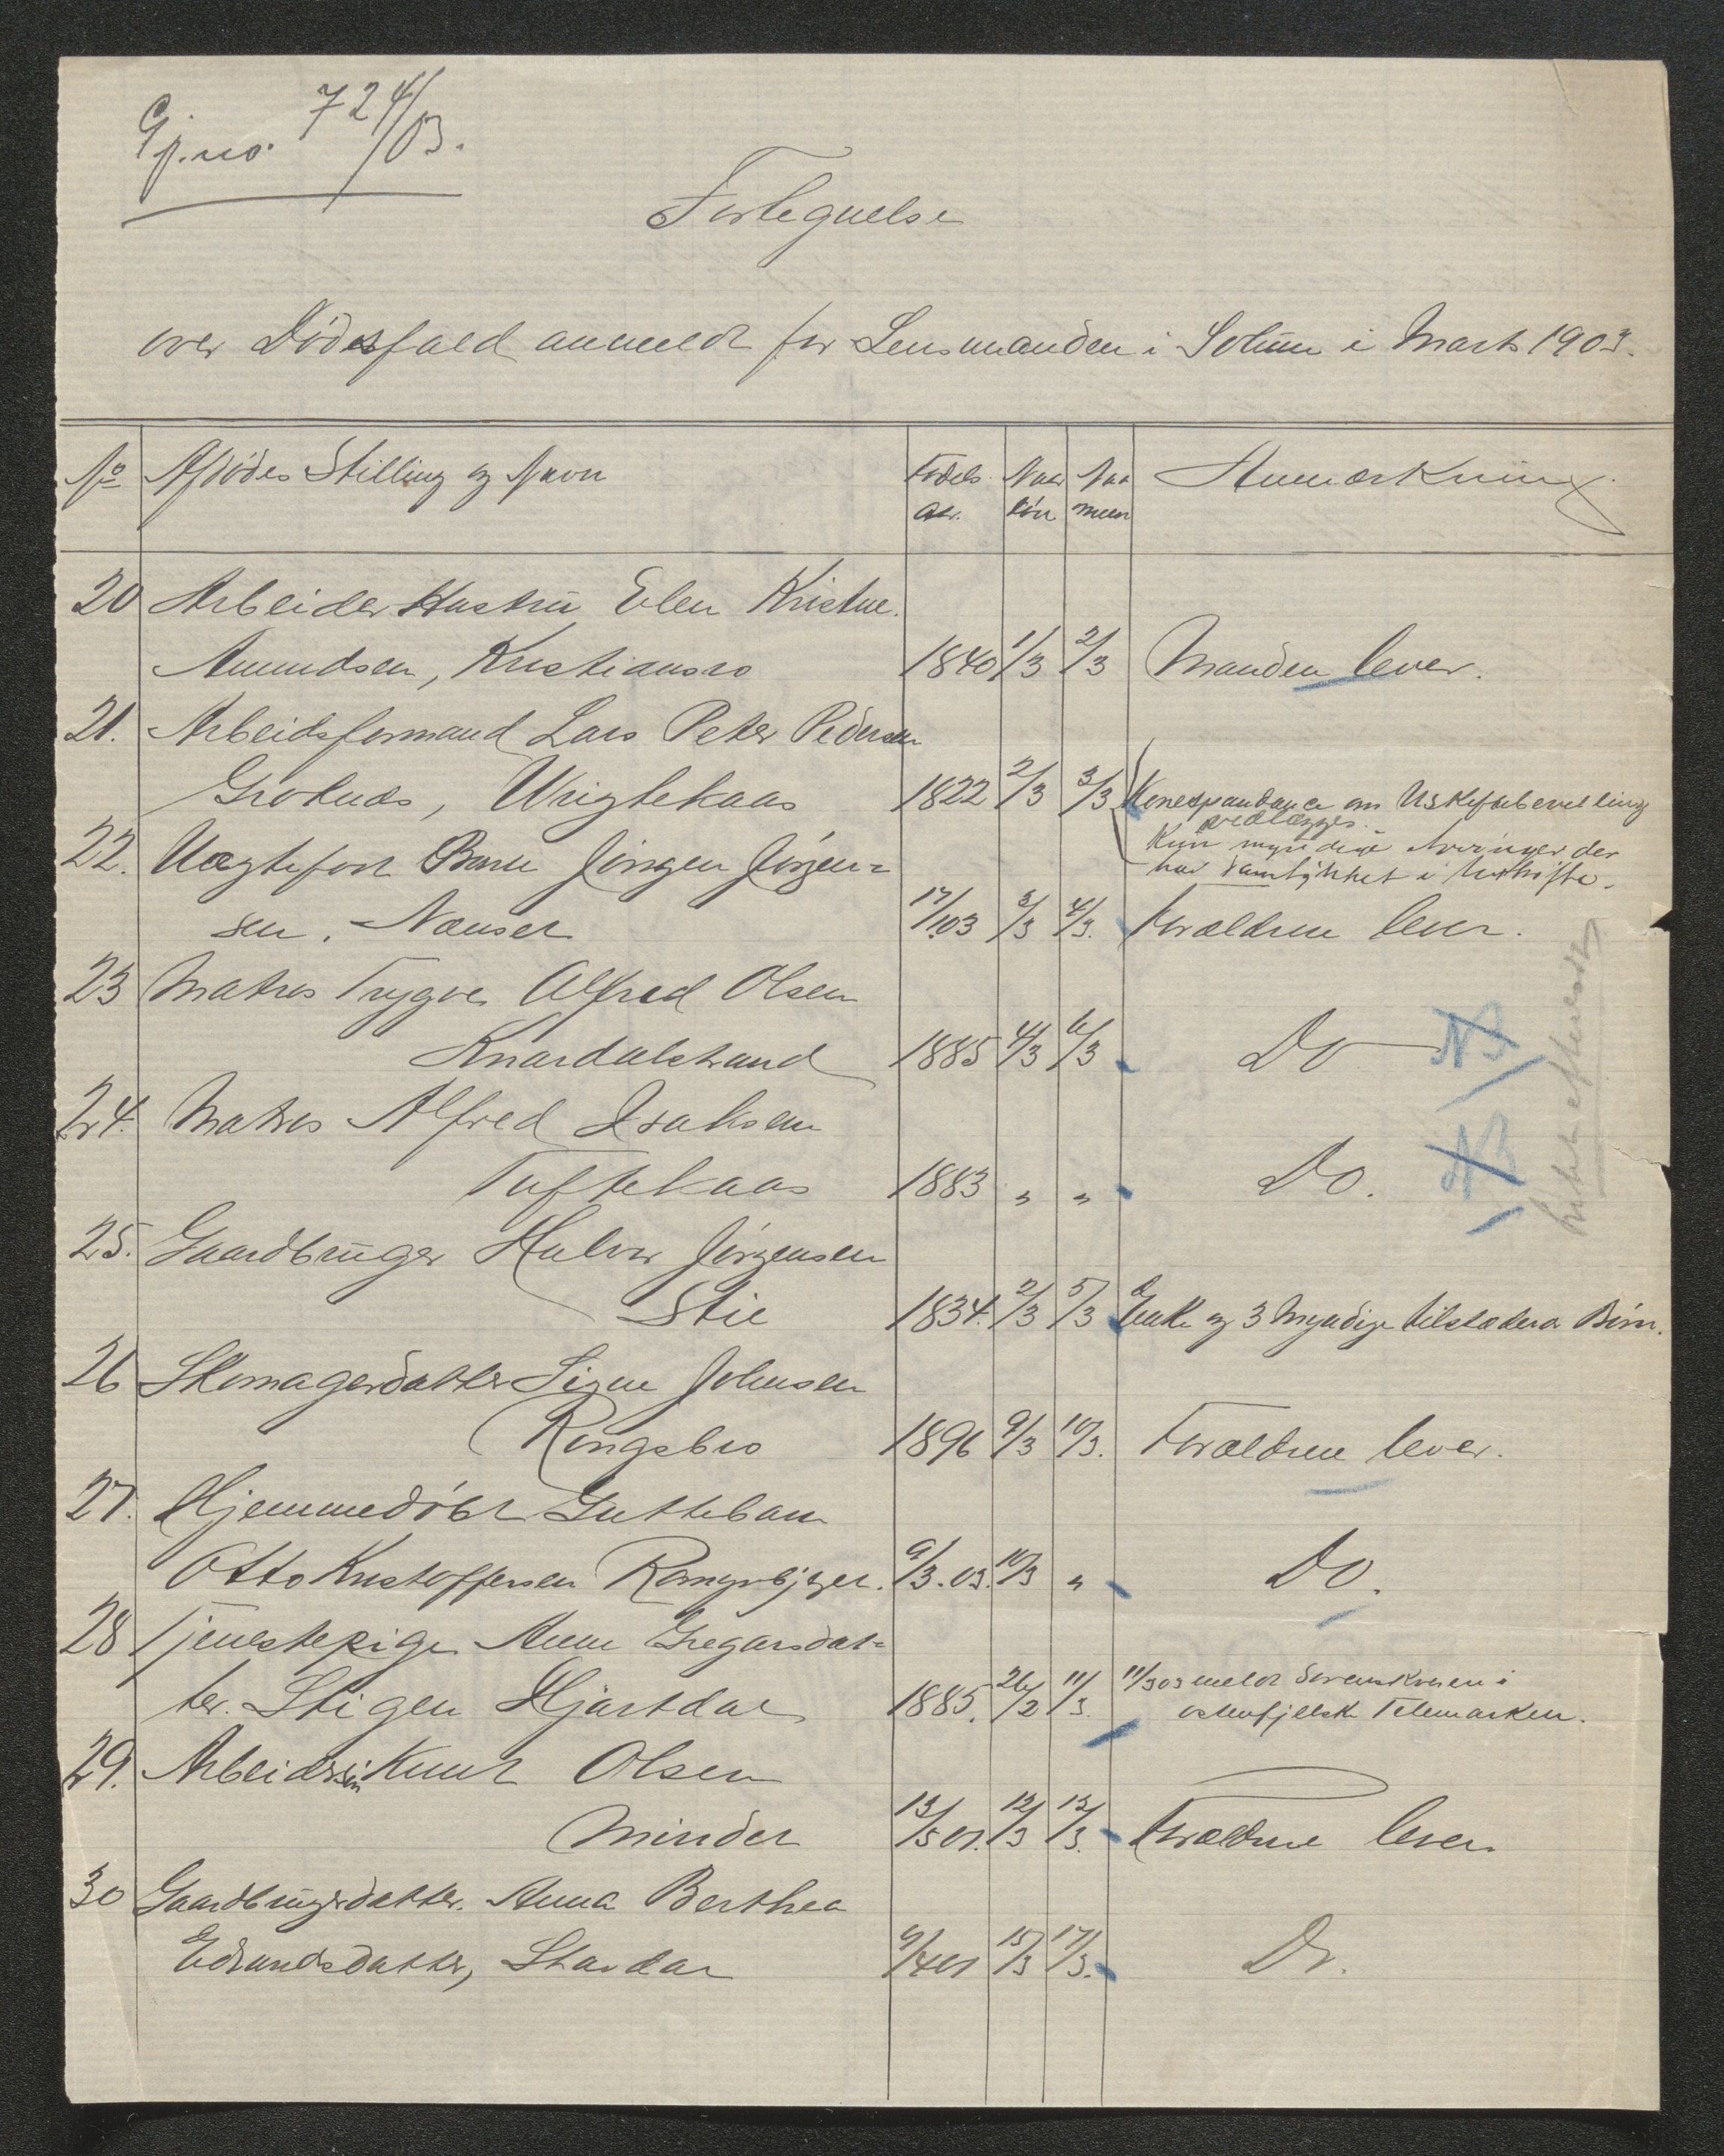 Gj.no. 724/03.
Fortegnelse
over Dødsfald anmeldt for Lensmanden i Solum i Marts 1903.
No Afdødes Stilling og Navn Fødels aar. Naar død Naar meldt Anmærkning.
20 Arbeider Hustru Elen Kristine
Amundsen, Kristiansro 1840 1/3 2/3 Manden lever.
21. Arbeidsformand Lars Peter Pedersen
Grotnæs, 1822 2/3 3/3 Korrespondance om Uskiftebevilling
vedlægges.
Kun myndige Arvinger der
har samtykket i Uskifte.
22. Uægtefødt Barn Jørgen Jørgen-
sen, Nenset 17/1 03 3/3 4/3. Forældrene lever.
23 Matros Trygve Alfred Olsen
Knardalstrand 1885 4/3 6/3 Do NB
24. Matros Alfred Isaksen
Tuftekaas 1883 " " Do. NB
intet efterladt
25. Gaardbruger Halvor Jørgensen
Stie 1834. 2/3 5/3 Enke og 3 Myndige tilstædeva Børn.
26 Skomagerdatter Signe Johnsen
Ringsbro 1896 9/3 10/3. Forældrene lever.
27. Hjemmedøbt Guttebarn
Otto Kristoffersen 9/3.03. 10/3 " Do.
28 Tjenestepige Anne Gregarsdat-
ter. Stigen Hjartdal 1885. 26/2 11/3. 11/3 03 meldt Sorenskriveren i
østenfjelsk Telemarken.
29. Arbeidersøn Knut Olsen
Minder 13/5 01. 12/3 13/3. Forældrene lever.
30 Gaardbrugerdatter. Anna Berthea
Edvandsdatter, Skardal 9/4 01 15/3 17/3. Do.